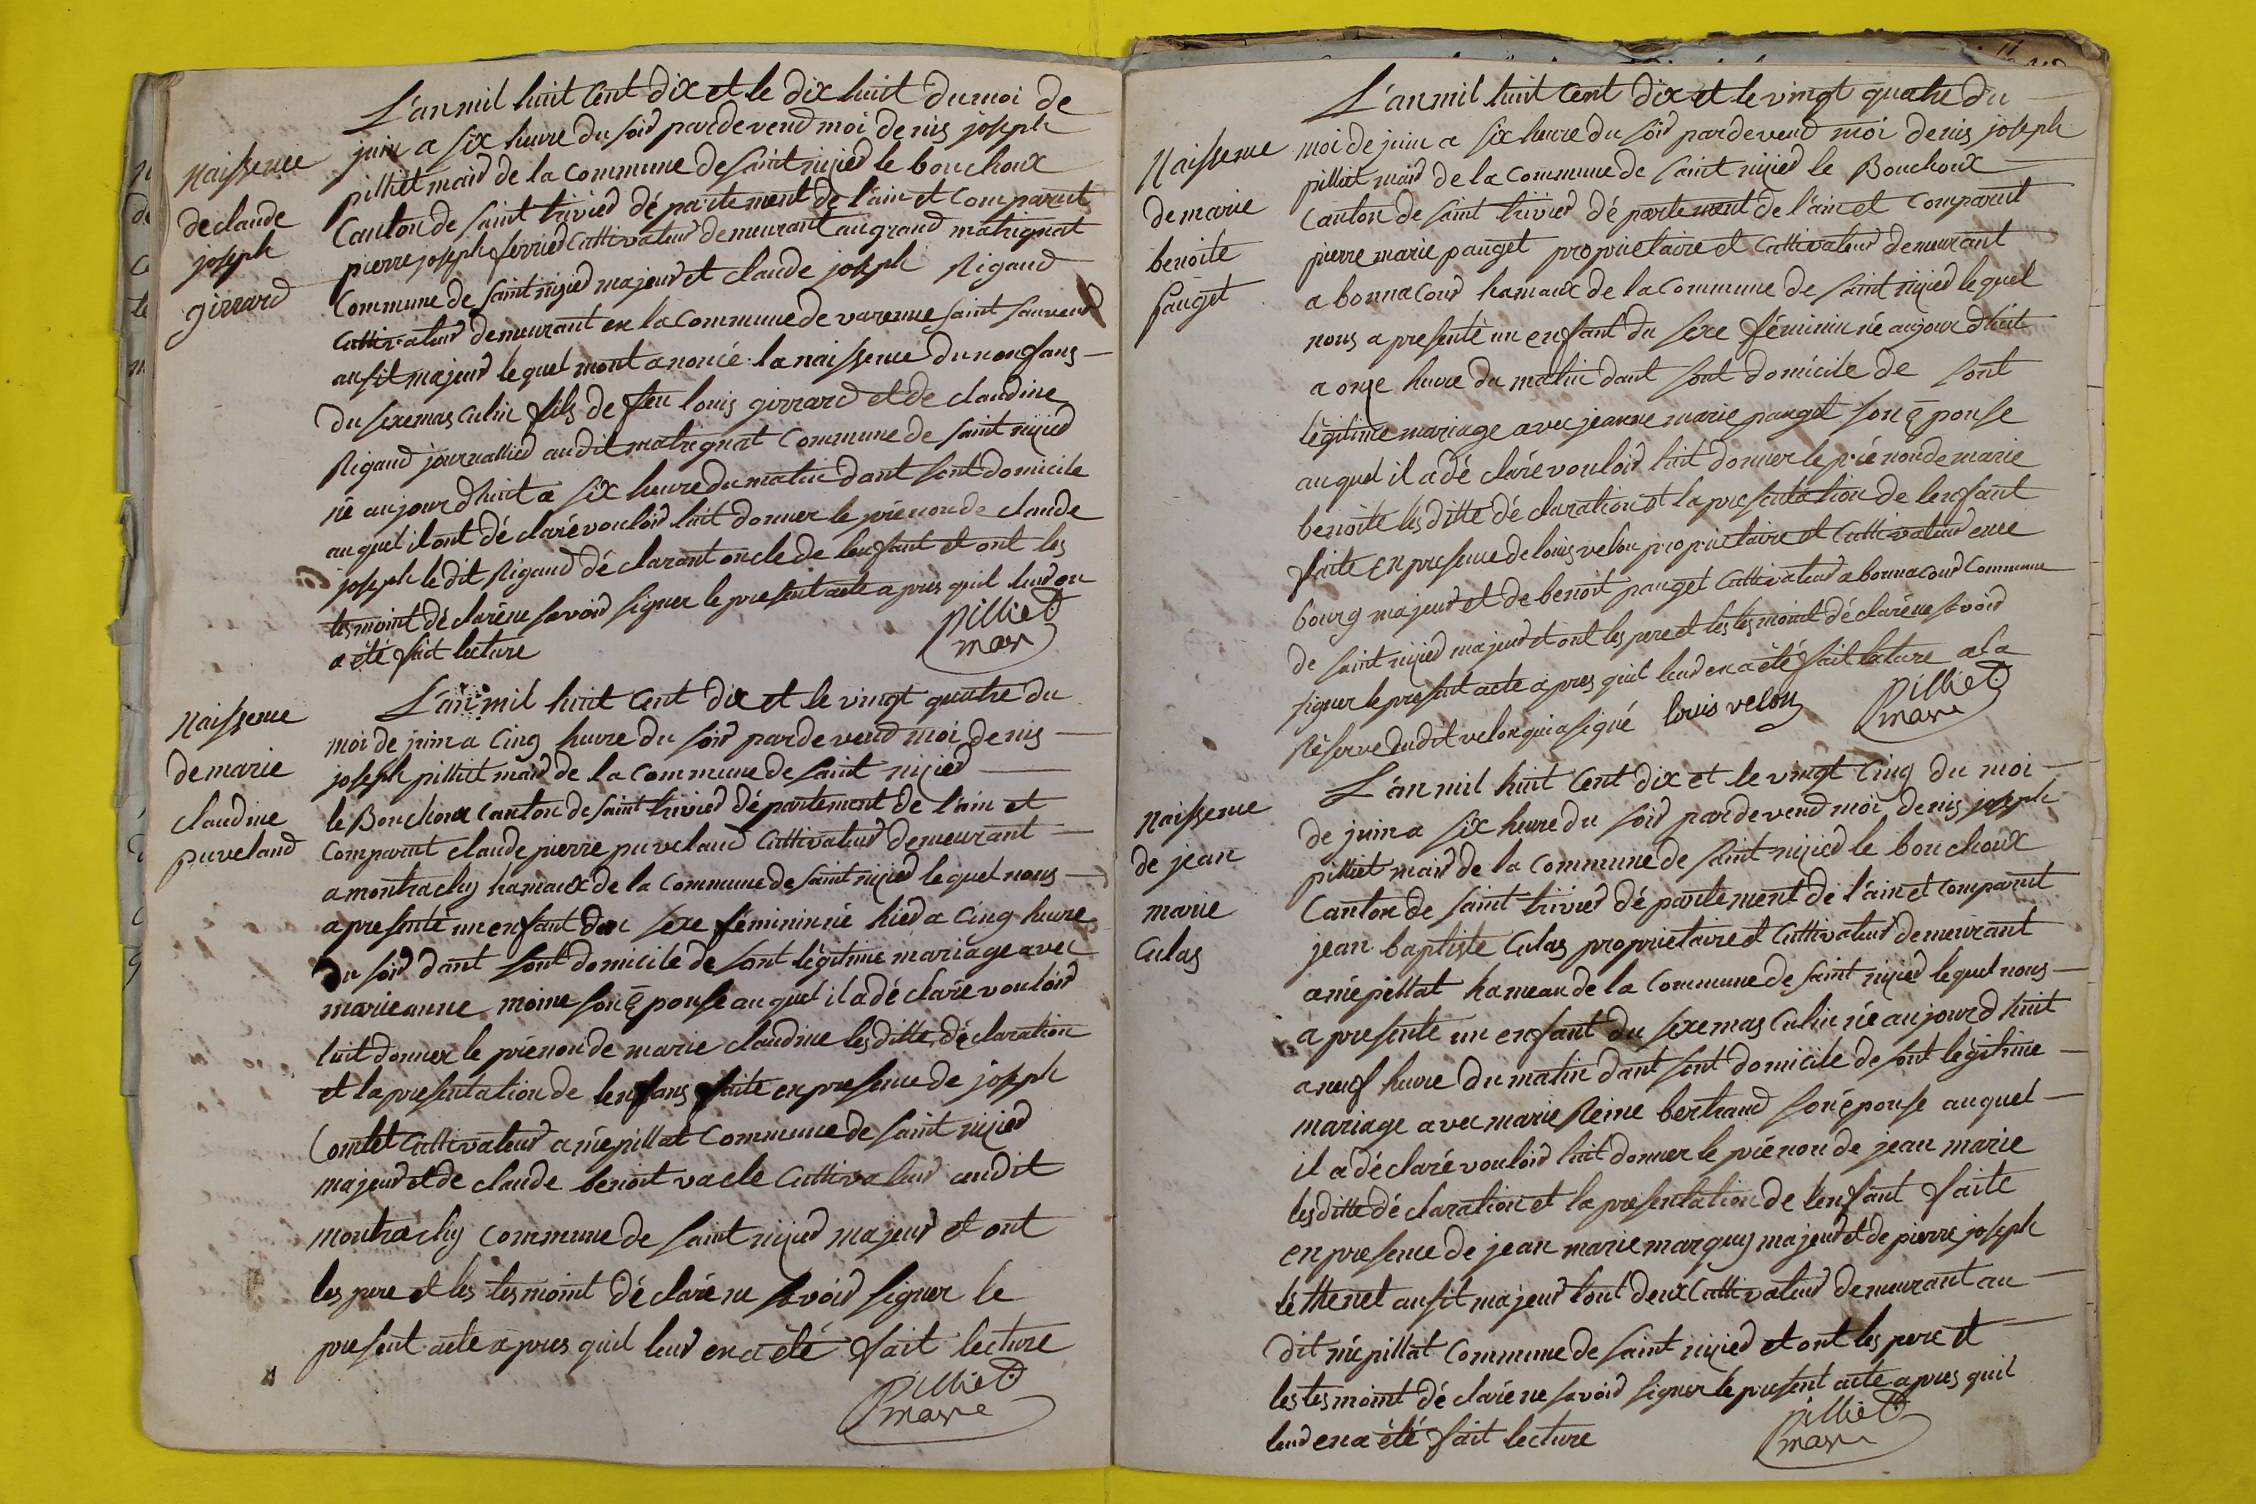 Naissence
de claude
joseph
girrard
L'an mil huit Cent dix et le dix huit du moi de
juin a six heure du soir pardevend moi denis joseph
pilliet mair de la Commune de saint nizied le bouchoux
Canton de saint trivied département de l'ain et Comparut
pierre joseph ferried Cultivateur demeurant au grand matrignat
Commune de saint nizied majeur et claude joseph Rigaud
Cultivateur demeurant en la Commune de varenne saint sauveur
aussit majeur lequel mont anoncé la naissence du nonfans
du sexe masculin fils de feu louis girrard et de claudine
Rigaud journallied audit matrignat Commune de saint nizied
né aujourdhuit a six heure du matin dant sont domicile
auquel il ont déclaré vouloir luit donner le prénon de claude
joseph le dit Rigaud déclarant oncle de lenfant et ont les
tesmoint déclaré ne savoir signer le present acte apres quil leurd en
a été fait lecture
Pilliet
mair
Naissence
de marie
claudine
puveland
L'an mil huit Cent dix et le vingt quatre du
moi de juin a Cinq heure du soir pardevend moi denis
joseph pilliet mair de la Commune de saint nizied
le Bouchoux Canton de saint trivied département de l'ain et
Comparut claude pierre puveland Cultivateur demeurant
a montrachy hamaux de la Commune de saint nizied lequel nous
a presenté un enfant du sexe féminin né hied a Cinq heure
du soir dant sont domicile de sont légitime mariage avec
marie anne moine son épouse auquel il a déclaré vouloir
luit donner le prénon de marie claudine les ditte déclaration
et la presentation de lenfans faite en presence de joseph
Comtet Cultivateur a mépillat Commune de saint nizied
majeur et de claude benoit vacle Cultivateur audit
montrachy Commune de saint nizied majeur et ont
les pere et les tesmoint déclaré ne savoir signer le
present acte apres quil leur en a été fait lecture
Pilliet
maire
Naissence
de marie
benoite
pauget
L'an mil huit Cent dix et le vingt quatre du
moi de juin a six heure du soir pardevend moi denis joseph
pilliet mair de la Commune de saint nizied le Bouchoux
Canton de saint trivier département de l'ain et Comparut
pierre marie pauget proprietaire et Cultivateur demeurant
a bonnacour hamaux de la Commune de saint nizied lequel
nous a presenté un enfant du sexe féminin né aujourdhuit
a onze heure du matin dant sont domicile de sont
légitime mariage avec jeanne marie pauget son épouse
auquel il a déclaré vouloir luit donner le prénon de marie
benoite les ditte déclaration et la presentation de lenfant
faite en presence de louis velon proprietaire et Cultivateur
bourg majeur et de benoit pauget Cultivateur a bonnacour Commune
de saint nizied majeur et ont les pere et les tesmoint déclaré ne savoir
signer le present acte apres quil leurd en a été fait lature a la
Réserve dudit velon qui a signé louis velon
Pilliet
maire
Naissence
de jean
marie
Culas
L'an mil huit Cent dix et le vingt Cinq du moi
de juin a six heure du soir pardevend moi denis joseph
pilliet mair de la Commune de saint nizied le bouchoux
Canton de saint trivier département de l'ain et Comparut
jean baptiste Culas proprietaire et Cultivateur demeurant
a mépillat hameau de la Commune de saint nizied lequel nous
a presenté un enfant du sexe masculin né aujourdhuit
a neuf heure du matin dant sont domicile de sont légitime
mariage avec marie Reine bertrand son épouse auquel
il a déclaré vouloir luit donner le prénon de jean marie
les ditte déclaration et la presentation de lenfant faite
en presence de jean marie marquis majeur et de pierre joseph
léthenet aussit majeur tout deux Cultivateur demeurant au
dit mépillat Commune de saint nizied et ont les pere et
les tesmoint déclaré ne savoir signer le present acte apres quil
leurd en a été fait lecture
Pilliet
maire